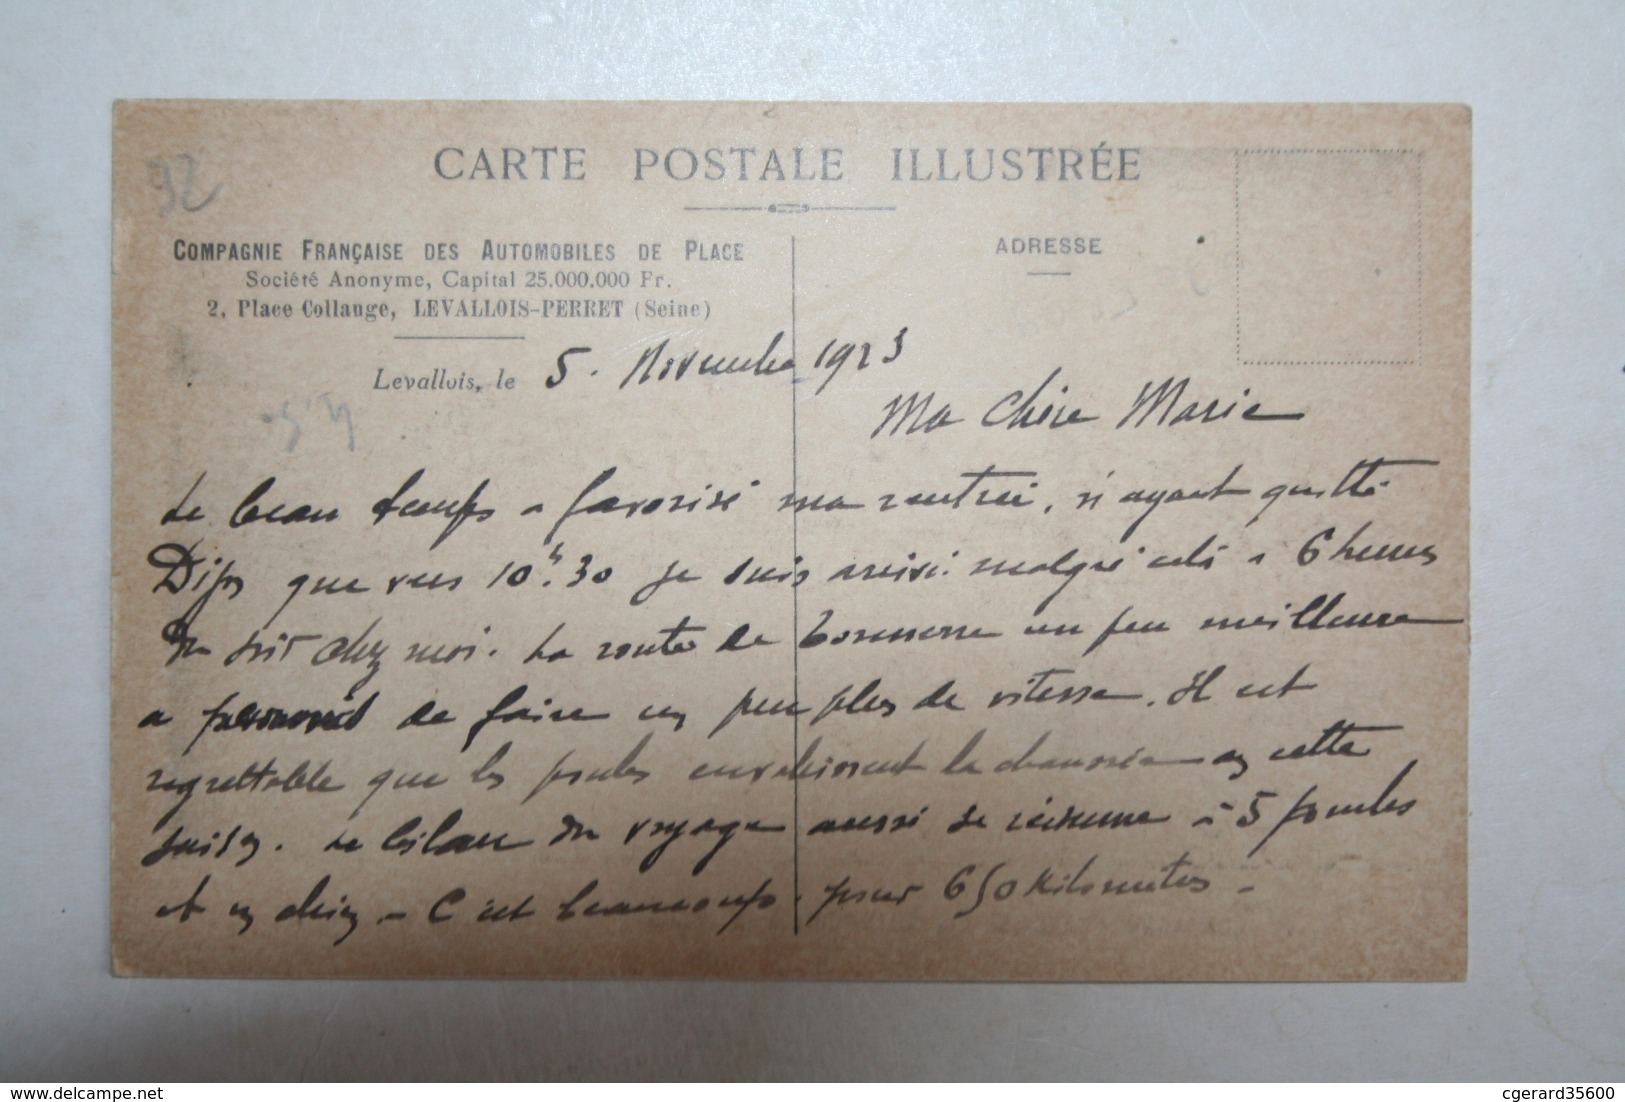 92
CARTE POSTALE ILLUSTRÉE
COMPAGNIE FRANÇAISE DES AUTOMOBILES DE PLACE
Société Anonyme, Capital 25.000.000 Fr.
2, Place Collange, LEVALLOIS-PERRET (Seine)
ADRESSE
Levallois, le 5. Novembre 1923
Ma chère Marie
Le beau temps a favorisé ma rentrée, si ayant quitté
que vers 10h.30 je suis arrivé malgré cela à 6 heures
du soir chez moi. La route de un peu meilleure
a permis de faire un peu plus de vitesse. Il est
regrettable que les poules envahissent la chaussée en cette
saison. Le bilan du voyage aussi se résume à 5 poules
et un chien. - C'est beaucoup. pour 650 kilomètres -
www.delcampe.net
cgerard35600